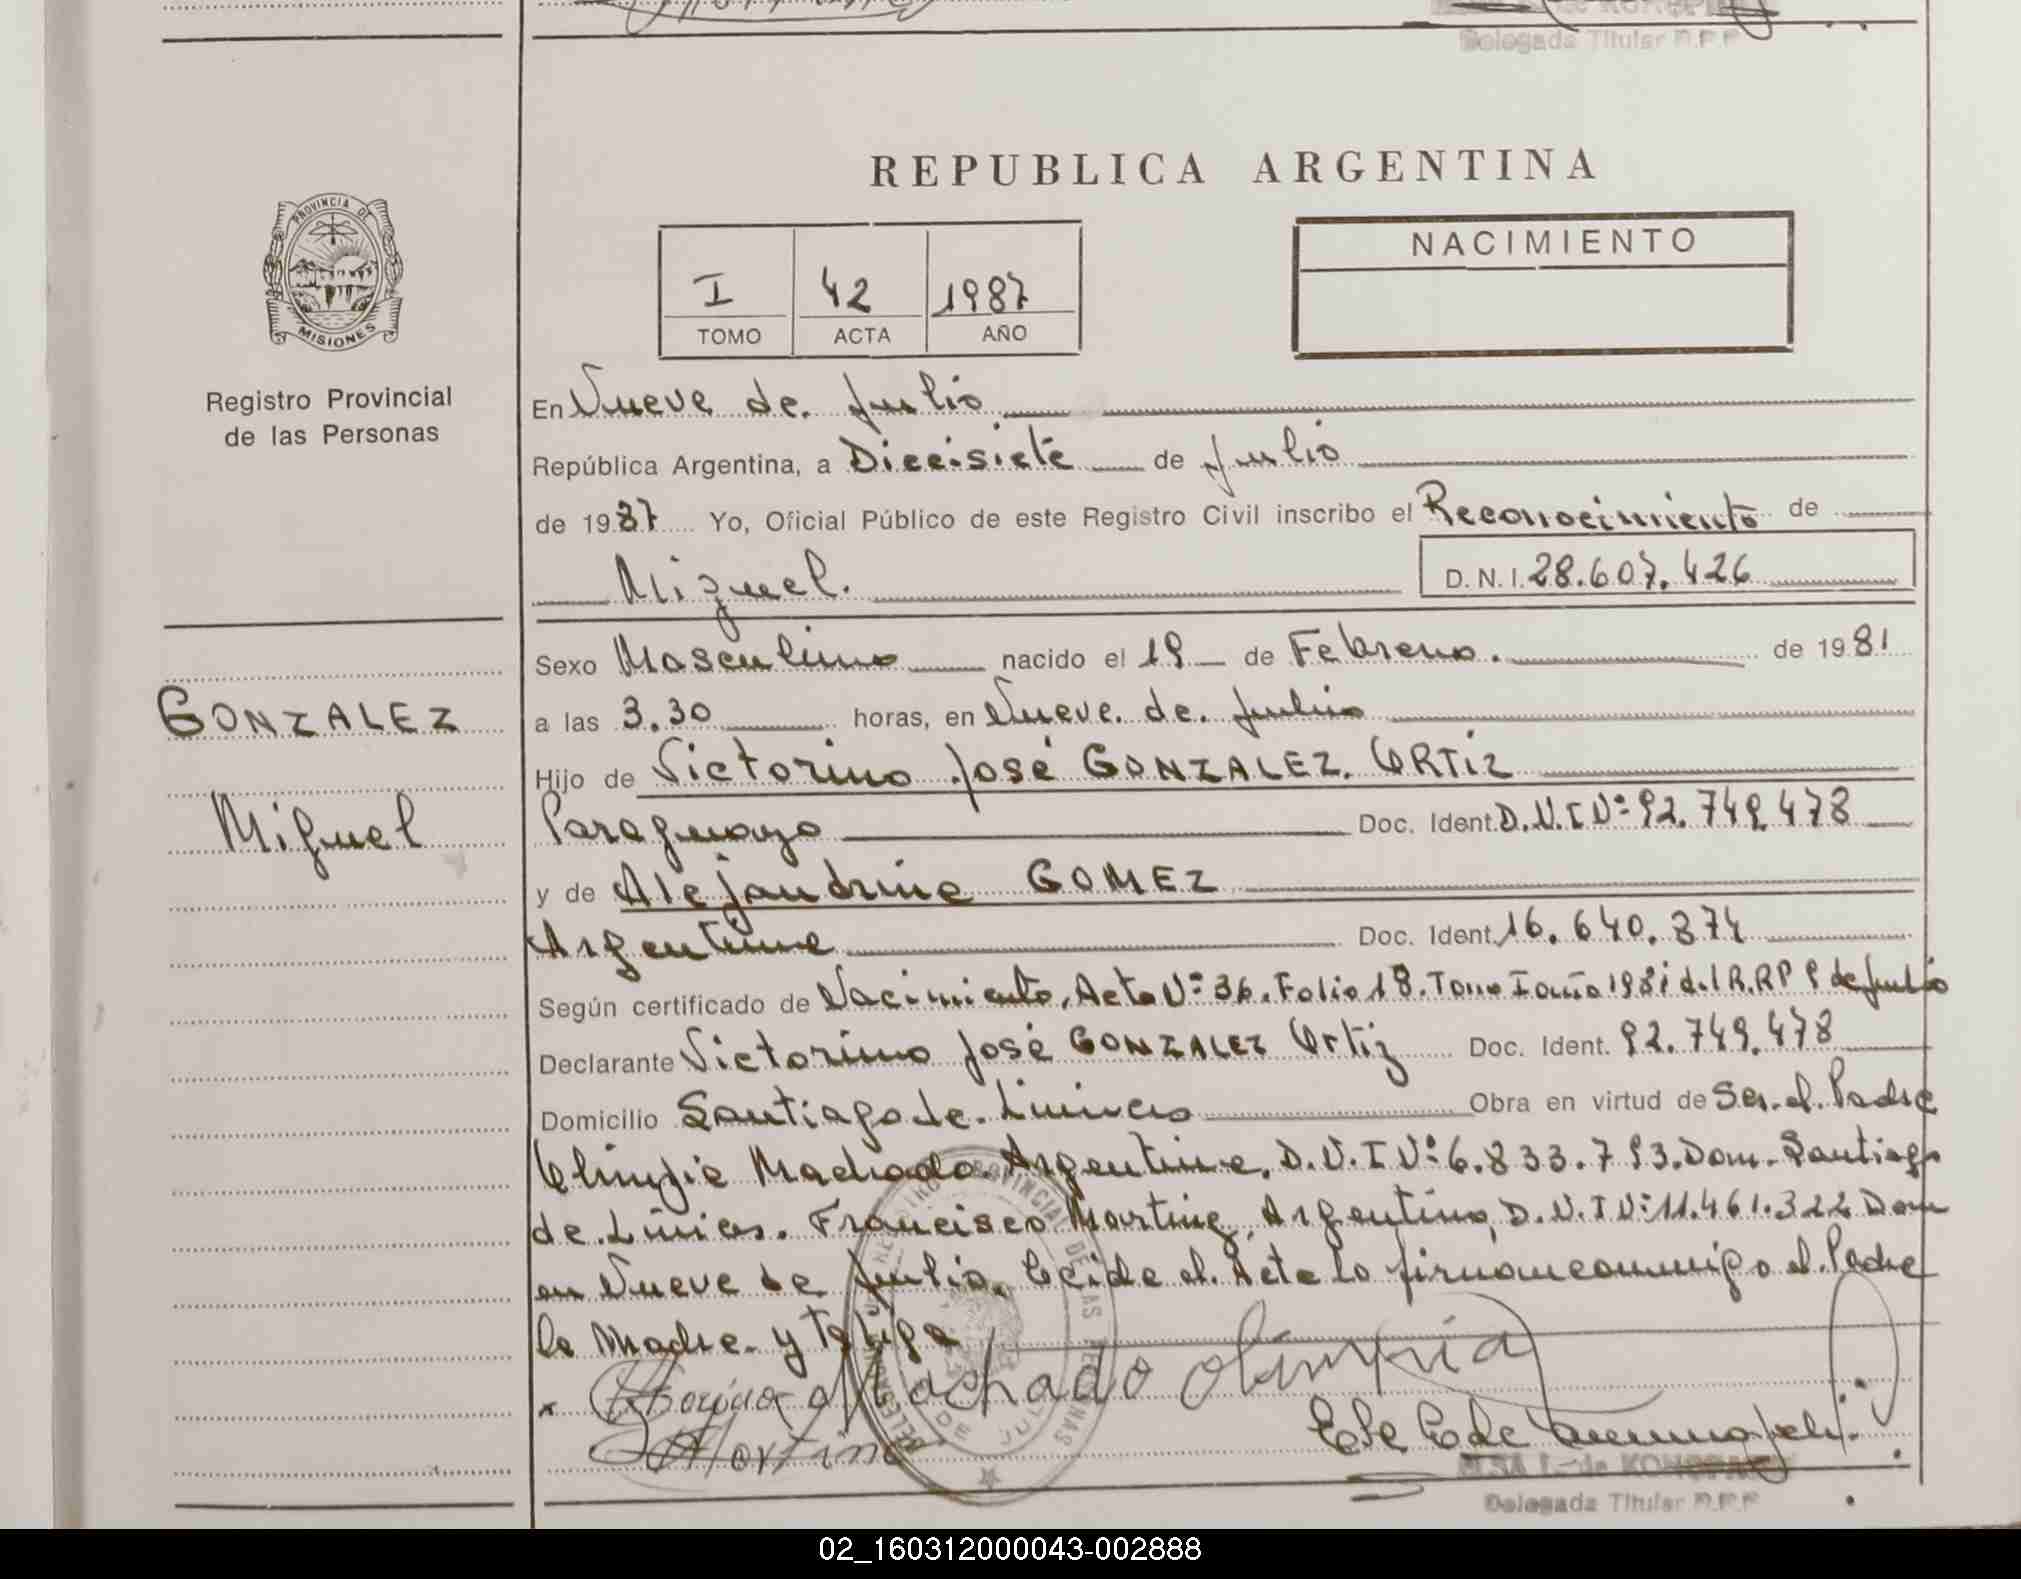 Delegada Titular R.P.P
REPUBLICA ARGENTINA
PROVINCIA DE MISIONES
NACIMIENTO
I 42 1987
TOMO ACTA AÑO
Registro Provincial
de las Personas
En Nueve de Julio
República Argentina, a Diecisiete de Julio
de 1987 Yo, Oficial Público de este Registro Civil inscribo el Reconocimiento de
Miguel. D.N.I. 28.607.426
Sexo Masculino nacido el 19 de Febrero. de 1981
GONZALEZ
a las 3.30 horas, en Nueve de Julio
Hijo de Victorino José GONZALEZ ORTIZ
Miguel
Paraguayo Doc. Ident. D.N.I Nº 92.749.478
y de Alejandrina GOMEZ
Argentina Doc. Ident. 16.640.874
Según certificado de Nacimiento, Acta Nº 36. Folio 18. Tomo I año 1981 del R.RP 9 de Julio
Declarante Victorino José GONZALEZ Ortiz Doc. Ident. 92.749.478
Domicilio Santiago de Liniers Obra en virtud de Ser el Padre
Machado Argentina, D.N.I Nº 6.833.793. Dom. Santiago
de Liniers. Francisco Martinez, Argentino, D.N.I Nº 11.461.322 Dom
en Nueve de Julio. Leida el Acta lo firman conmigo el Padre
la Madre y Testigo
x Machado Olimpia
Martine
REGISTRO PROVINCIAL DE LAS PERSONAS
ELSA L. de
Delegada Titular R.P.P
02_160312000043-002888